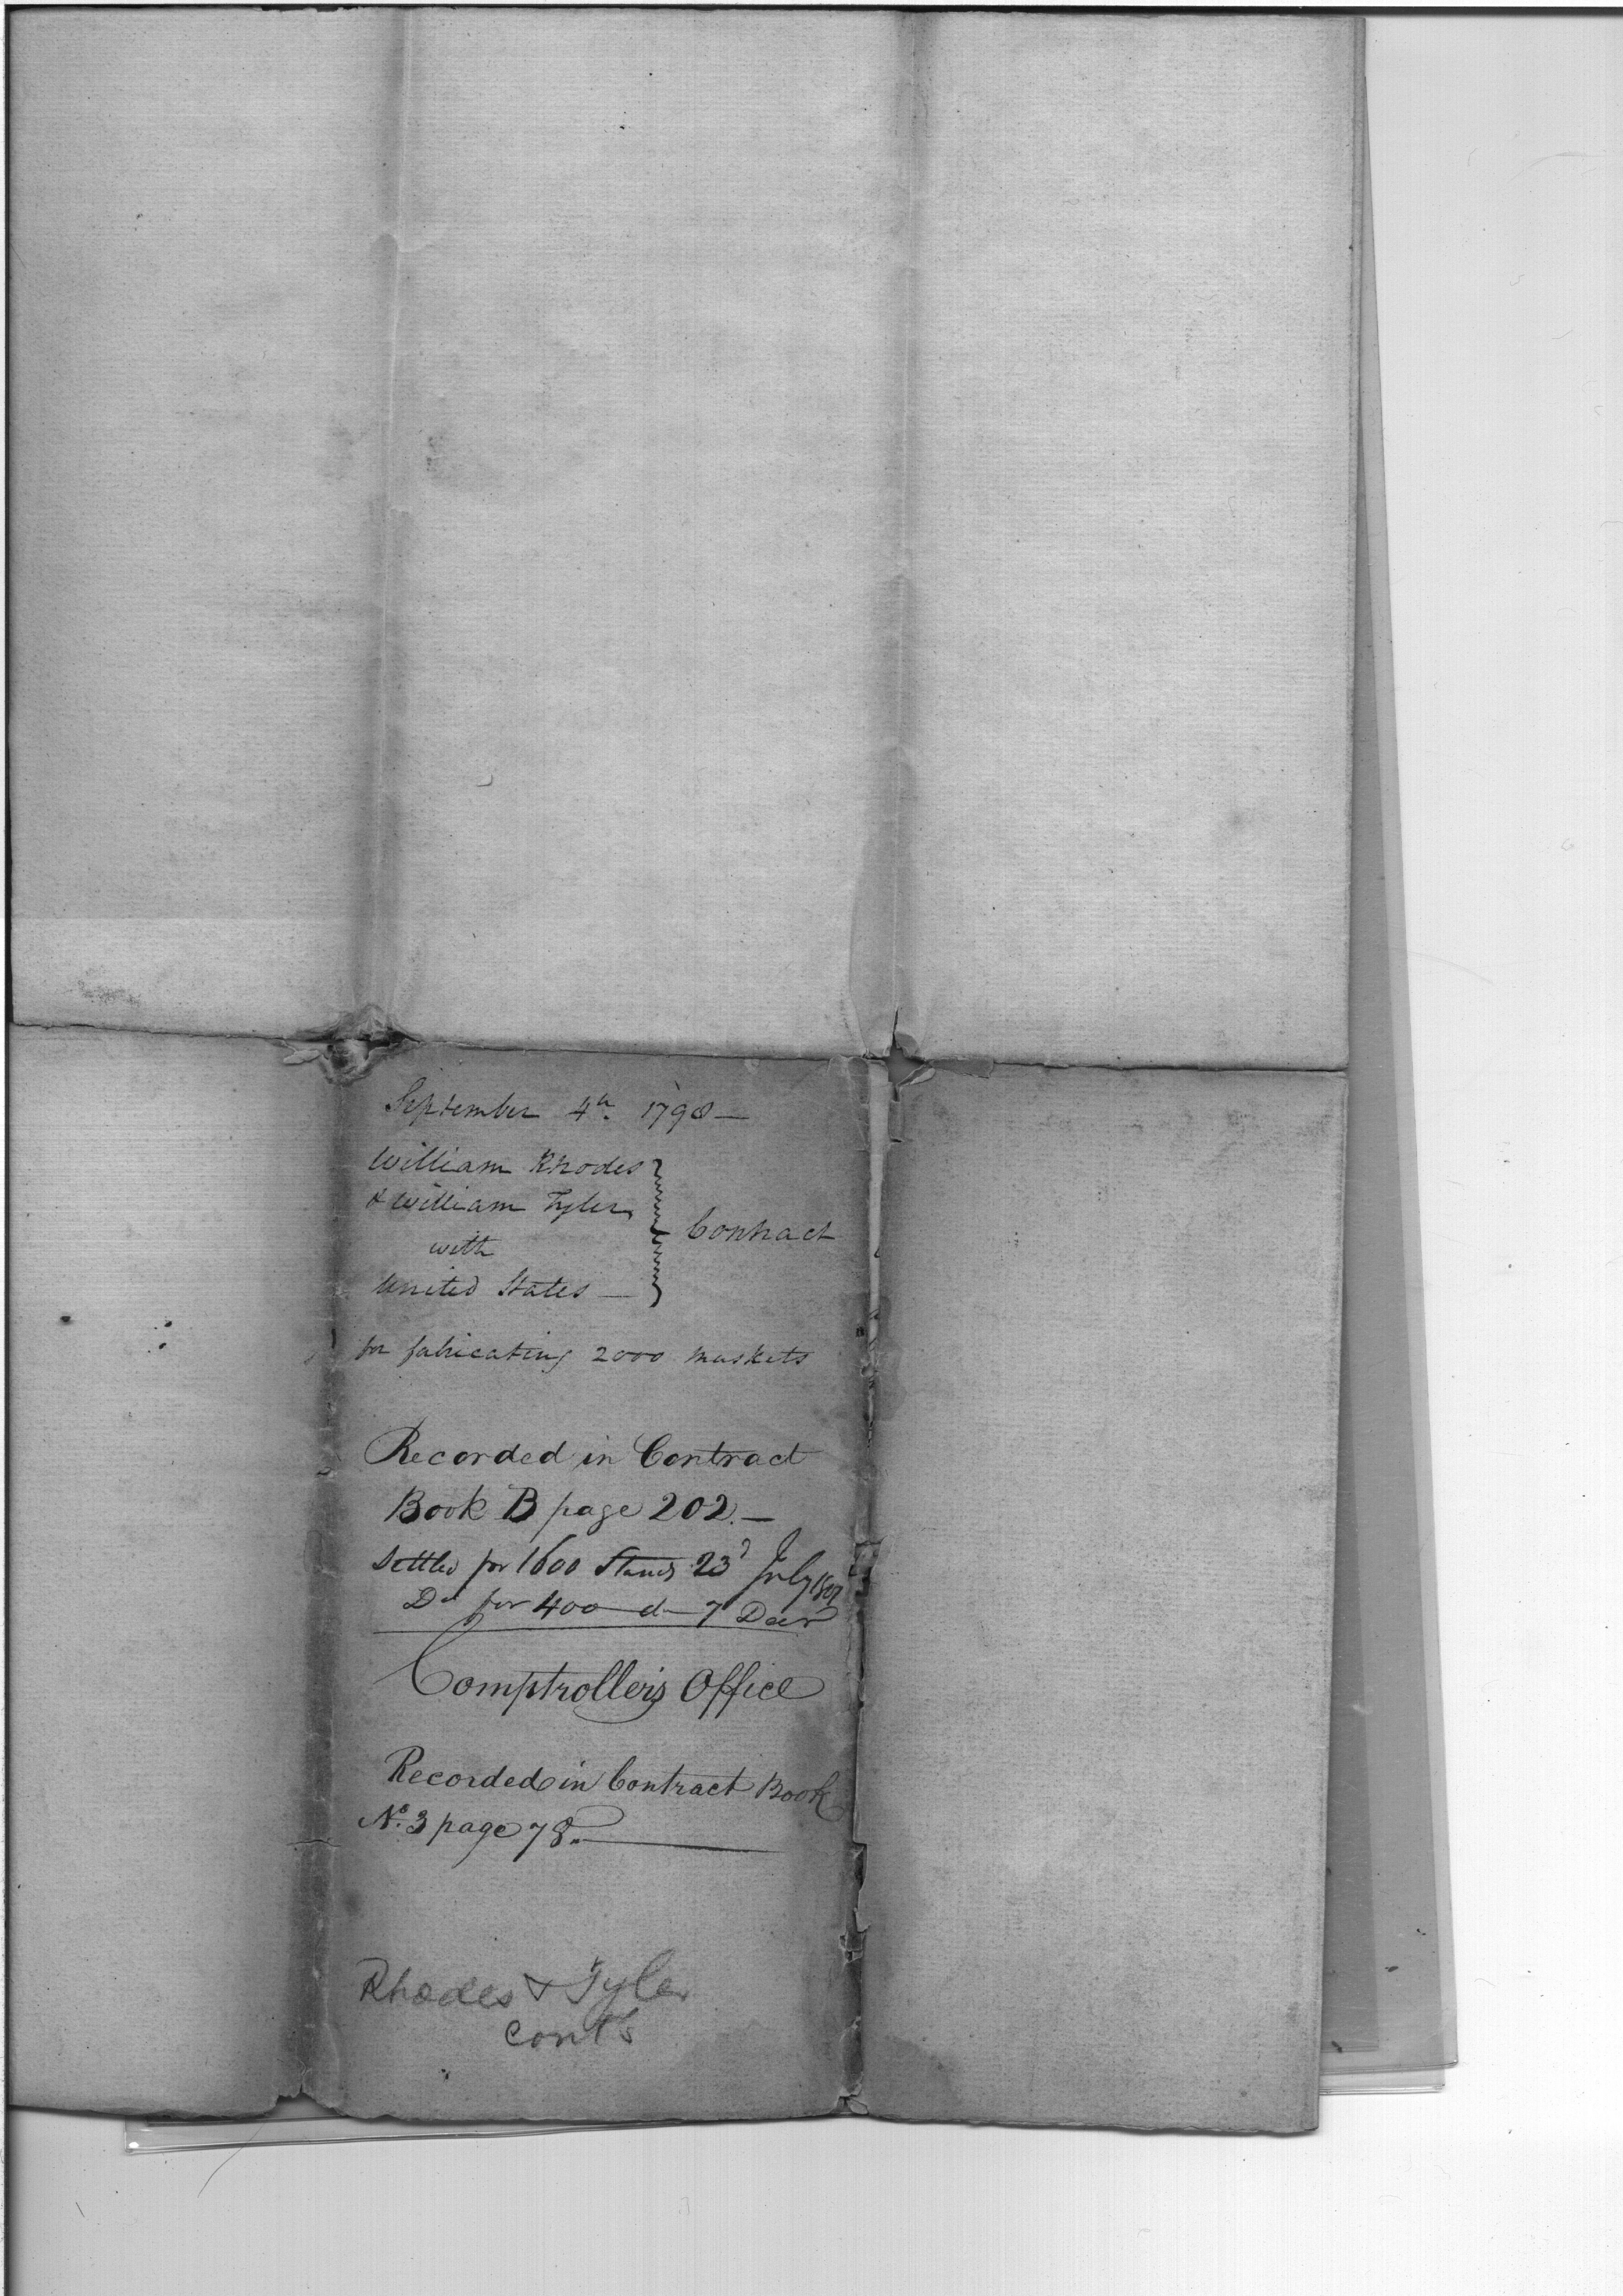 September 4th. 1798—
William Rhodes
& William Tyler
with
United States —
Contract
for fabricating 2000 muskets
Recorded in Contract
Book B page 202.—
Settled for 1600 Stands 23d July
Do for 400 do 7 Decr
Comptroller's Office
Recorded in Contract Book
No. 3 page 78.
Rhodes & Tyler
cont's